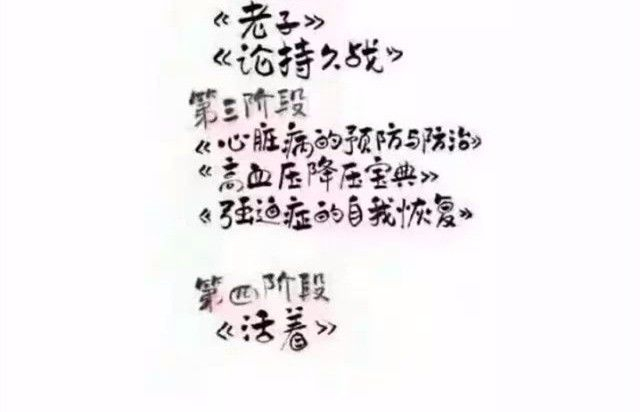 《老子》
《论持久战》
第三阶段
《心脏病的预防与防治》
《高血压降压宝典》
《强迫症的自我恢复》
第四阶段
《活着》